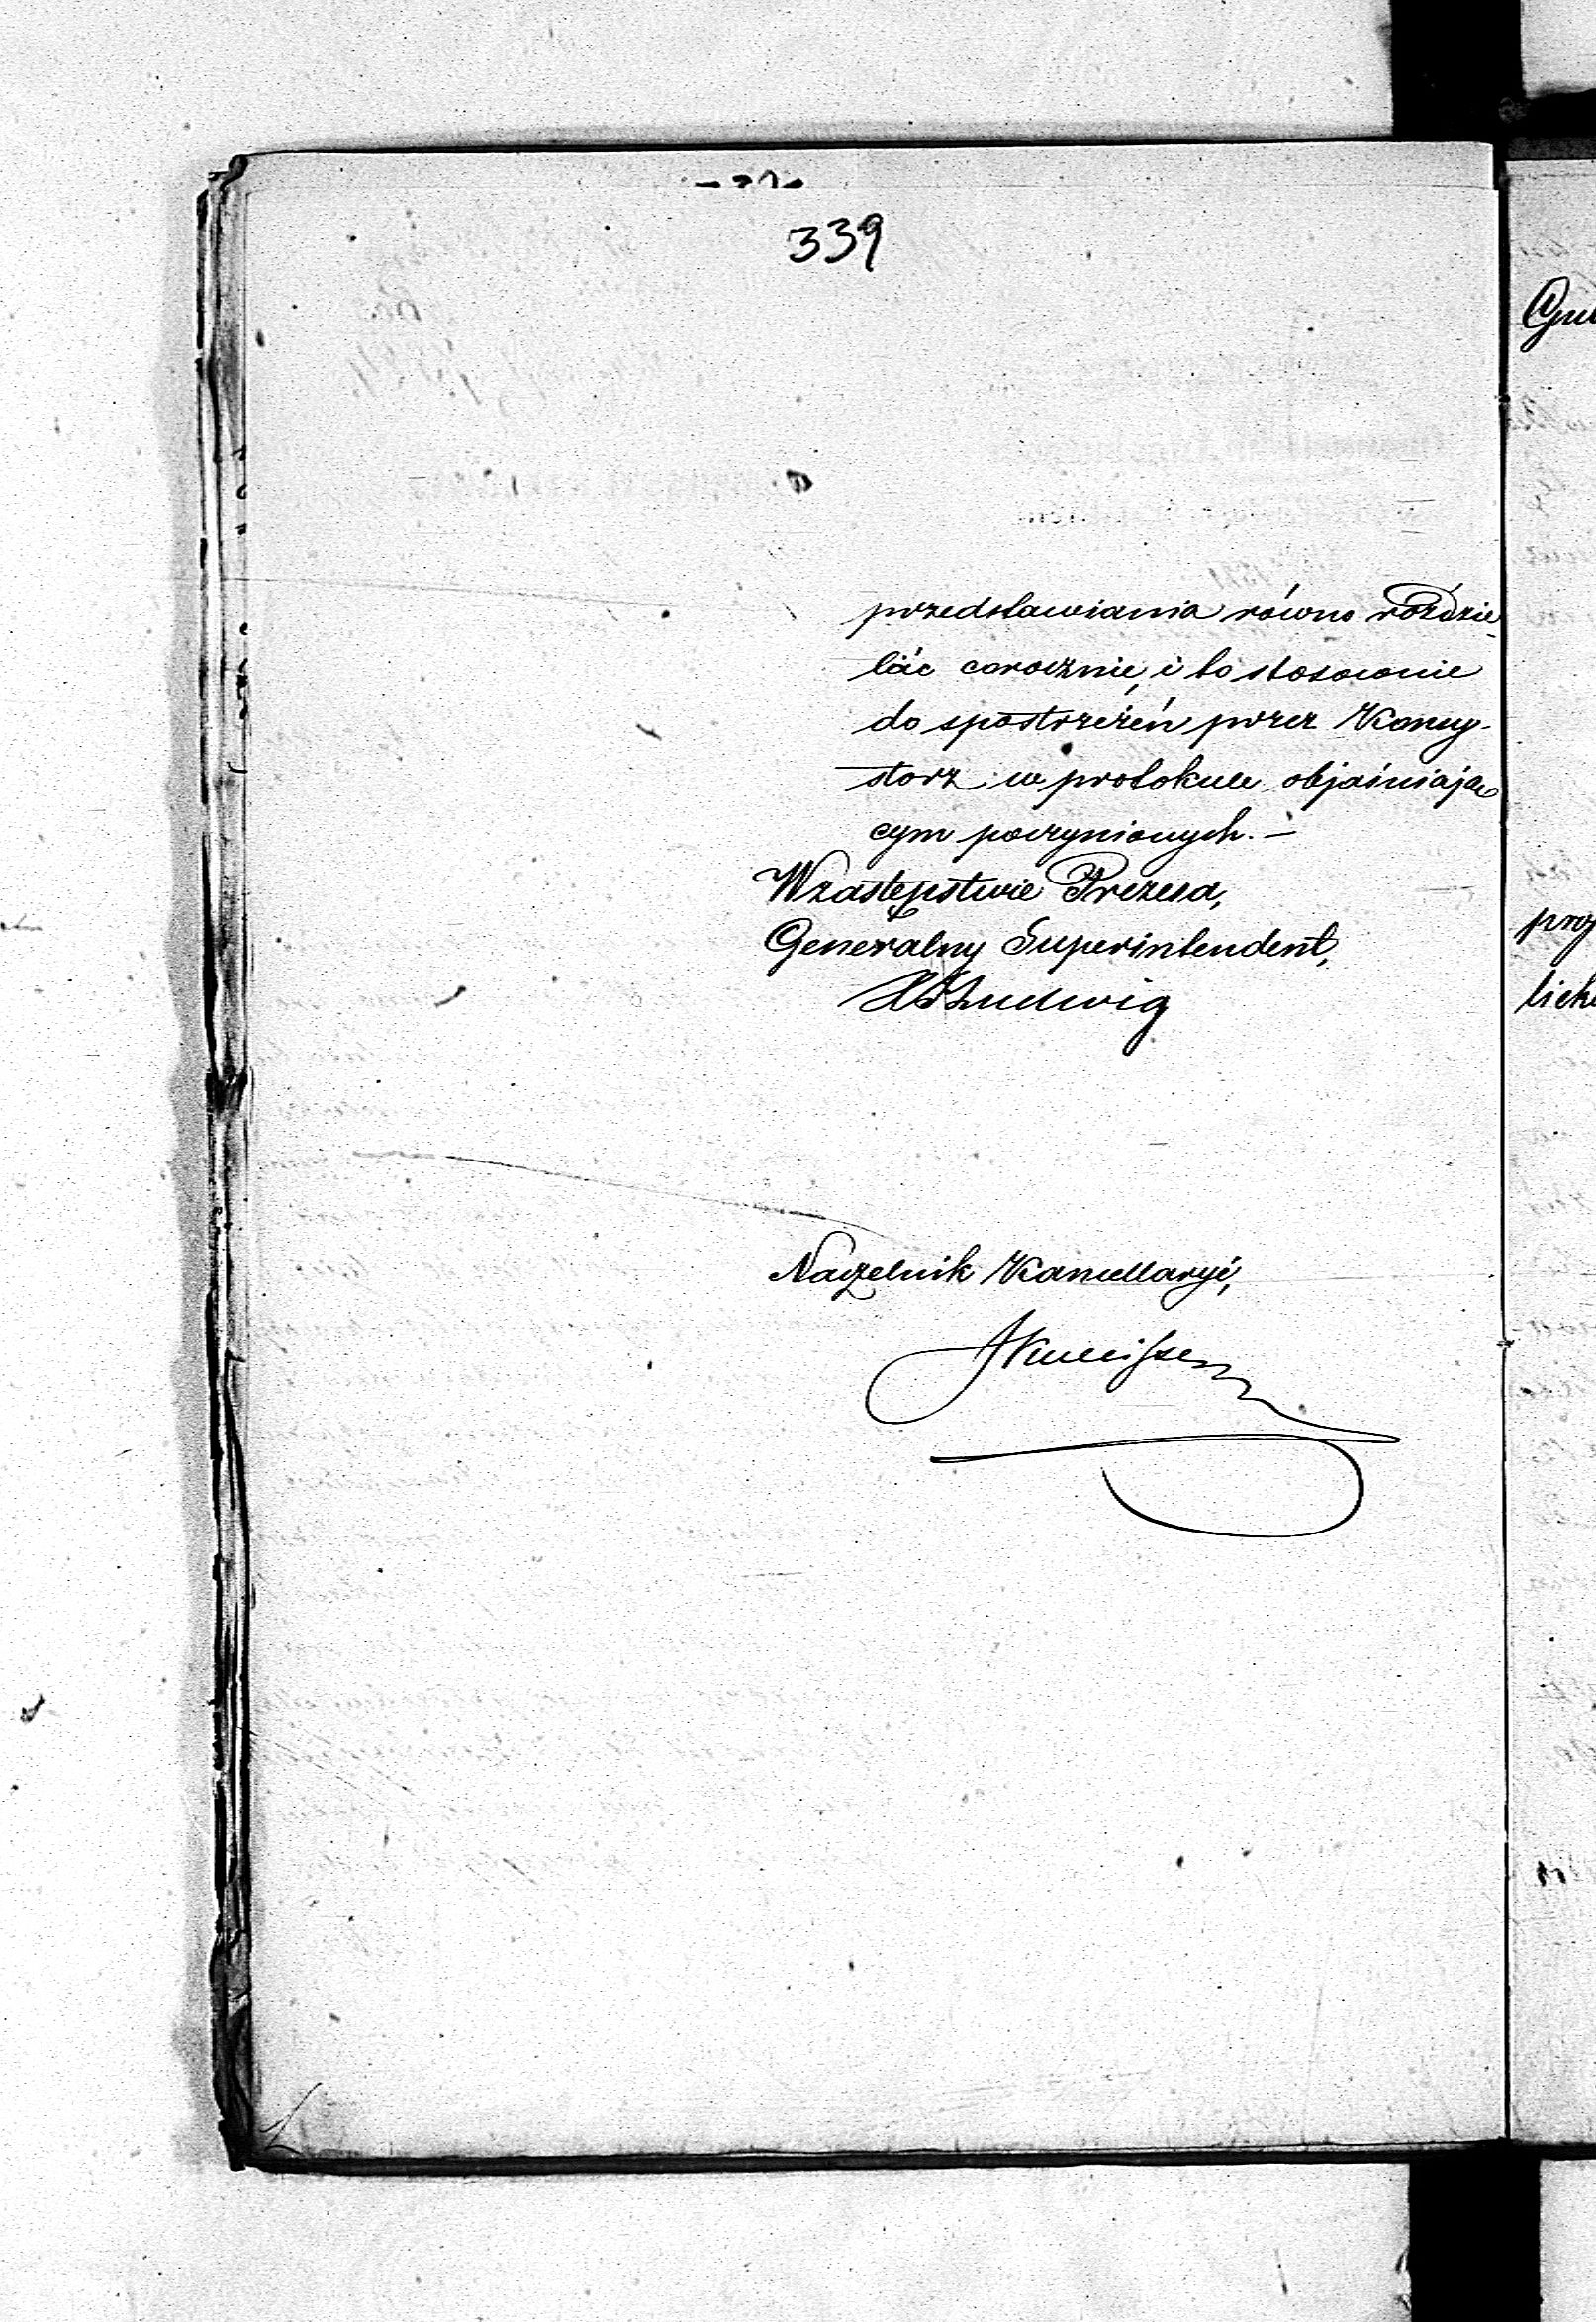 339
przedstawiania równo rozdzie-
láć corocznie, i to stosownie
do spostrzeżeń przez Konsy-
storz w protokule objaśniają-
cym poczynionych. –
W zastępstwie Prezesa,
Generalny Superintendent,
Ludwig
Naczelnik Kancellaryi,